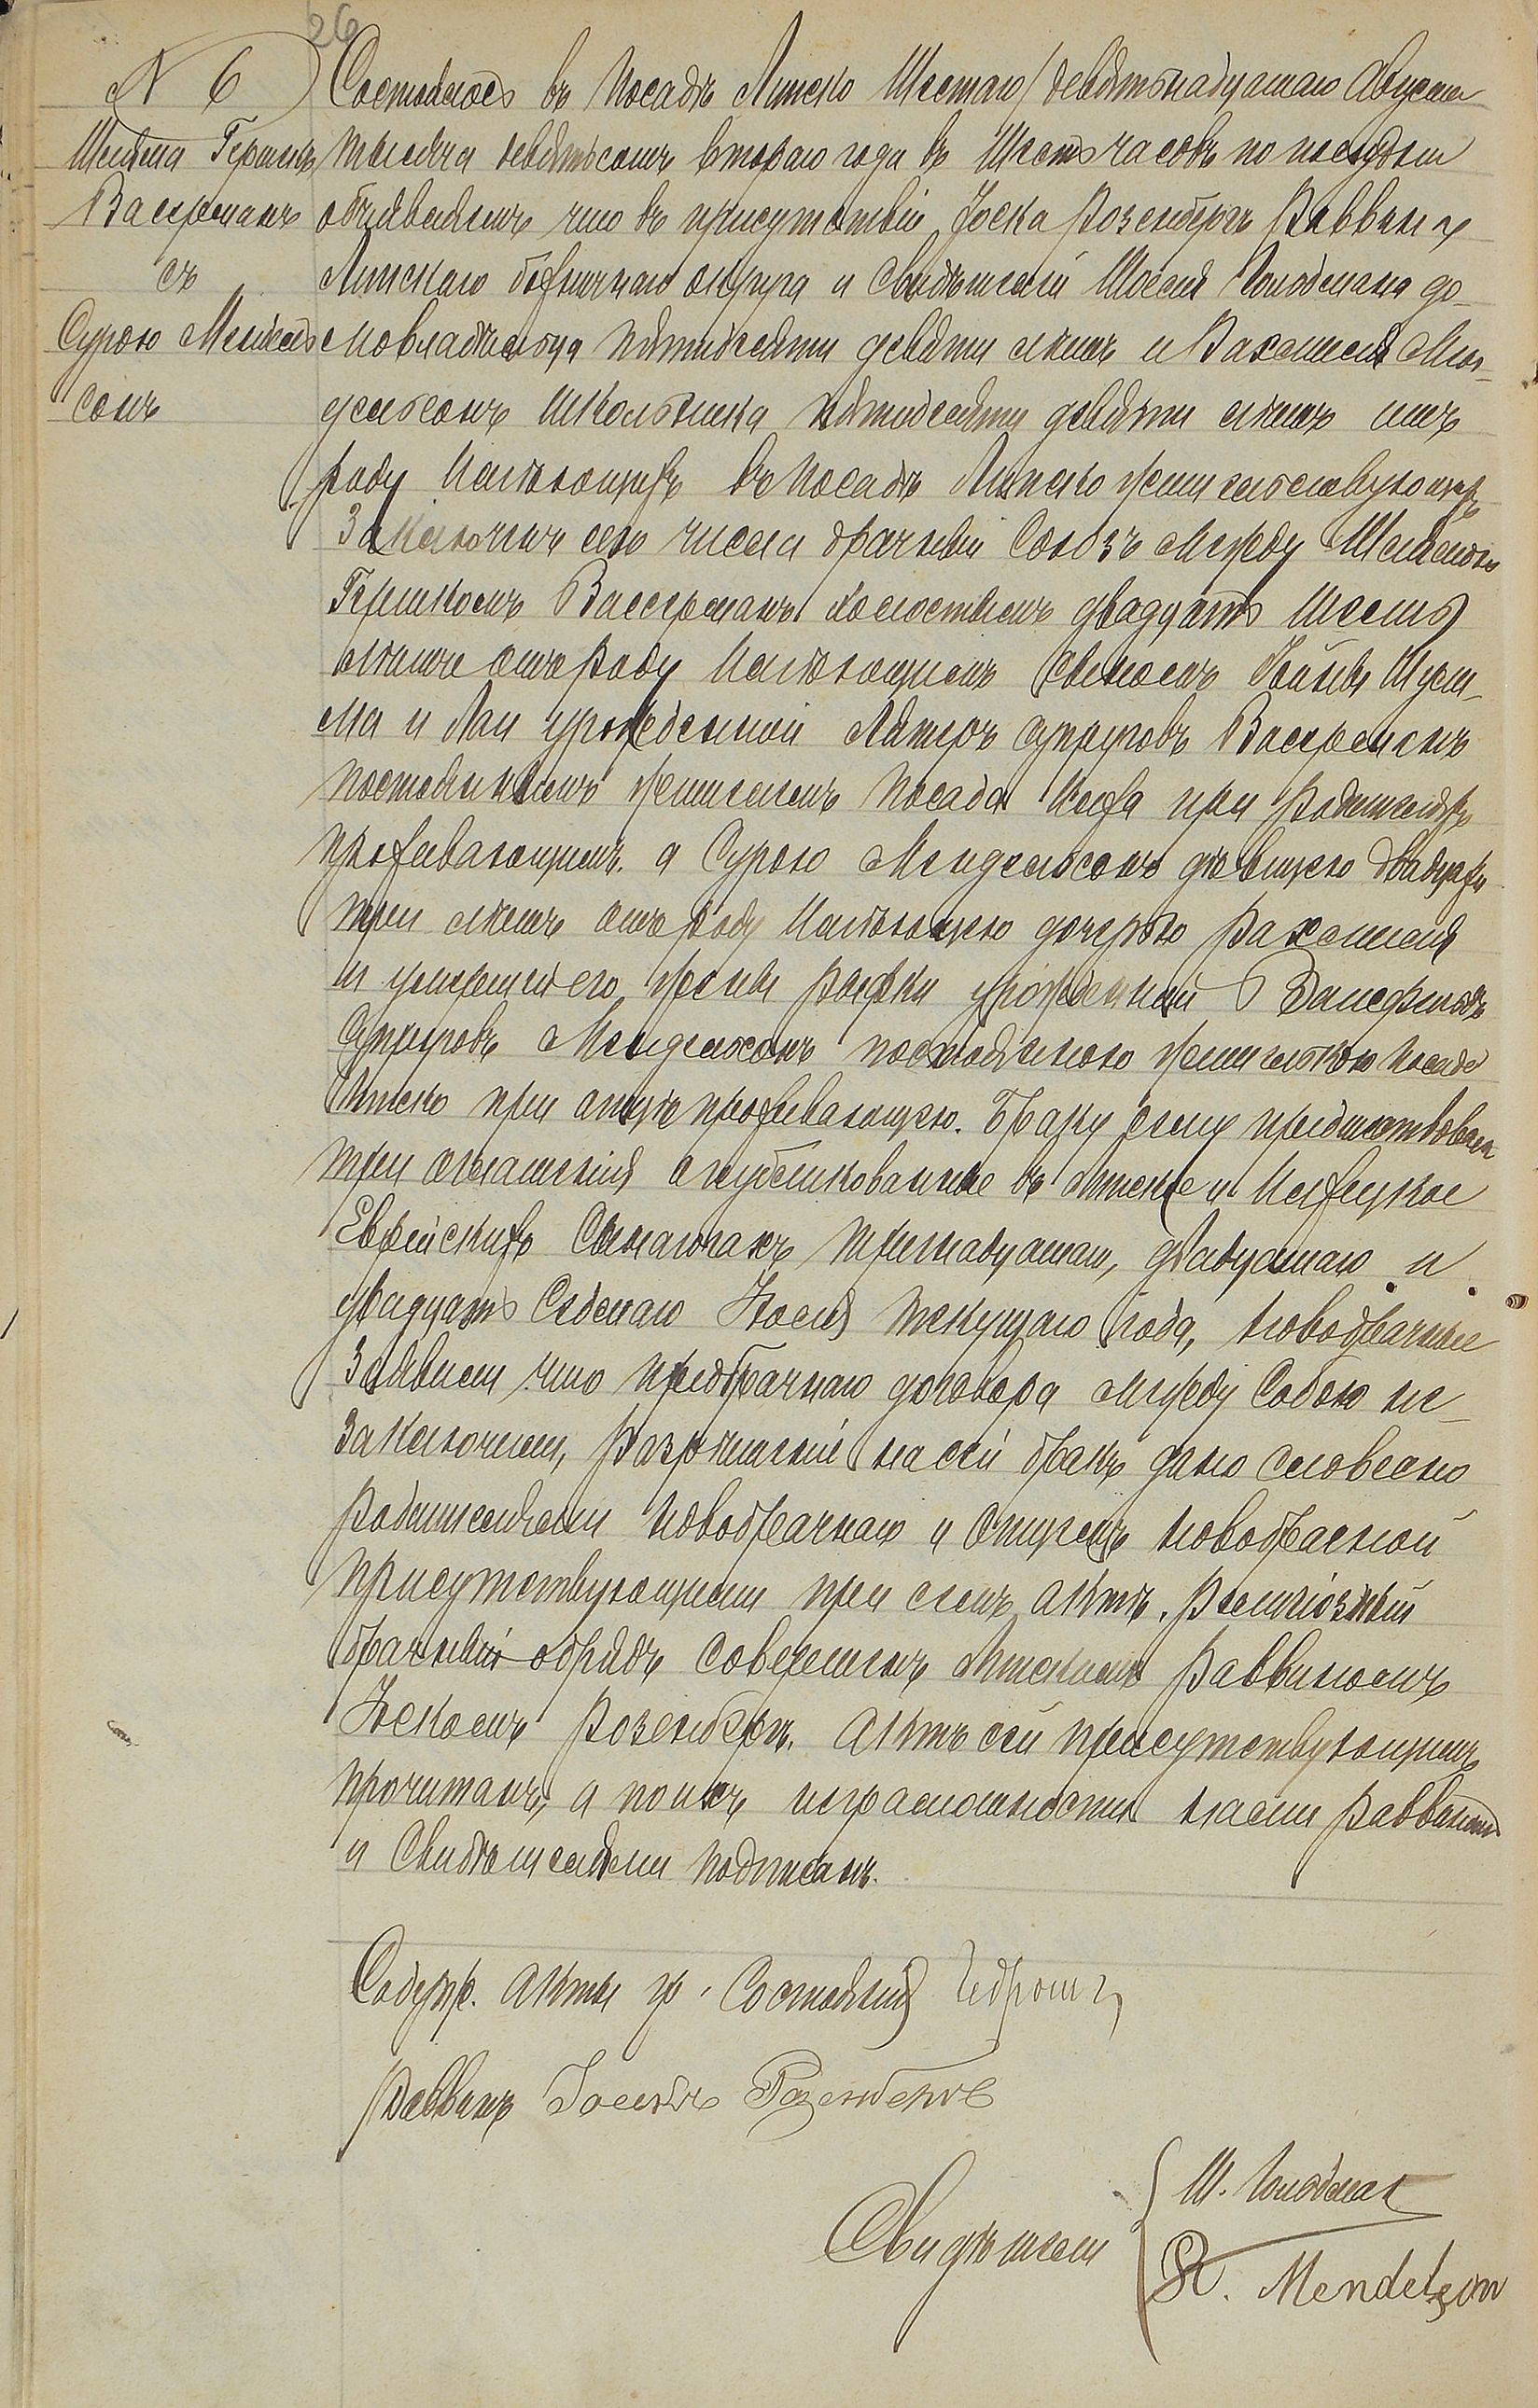 26
N 6
Шлема Гершъ
Вассерманъ
съ
Сурою Мендель
сонъ
Состоялось въ посадѣ Липско Шестаго/девятнадцатаго Августа
тысяча девятьсотъ втораго года въ Шесть часовъ по полудни
объявляемъ что въ присутствіи Іоска Розенбергъ Раввина
Липскаго божничнаго округа и Свидѣтелей Гольдмана до-
мовладѣльца пятидесяти девяти лѣтъ и Рахмиля Мен-
дельсонъ школьника пятидесяти девяти лѣтъ отъ
роду имѣющихъ въ посадѣ Липско жительствующихъ
Заключенъ сего числа брачный Союзъ между Шлемою
Гершкомъ Вассерманъ холостымъ двадцать шесть
лѣтъ отъ роду имѣющимъ сыномъ
и Лаи урожденной супруговъ Вассерманъ
постояннымъ жителемъ посада Илжа при родителяхъ
проживающимъ. а Сурою Мендельсонъ дѣвицею двадцать
три лѣтъ отъ роду имѣющею дочерью Рахмиля
и умершей его жены Рифки урожденной
Супруговъ Мендельсонъ постоянною жительницею посада
Липско при отцѣ проживающею. Браку сему предшествовали
три оглашенія опубликованные въ Липске и Илжецкое
Еврейскихъ Синагогахъ тринадцатаго, двадцатаго и
двадцать Седьмаго Іюля текущаго года, новобрачные
Заявили что предбрачнаго договора между собою не-
заключили, разрѣшеніе на сей бракъ дано словесно
родителями новобрачнаго и отцемъ новобрачной
присутствующими при семъ актѣ. Религіозный
брачный обрядъ совершенъ Липскимъ Раввиномъ
Іоскомъ Розенбергъ. Актъ сей присутствующимъ
прочитанъ, а по ихъ неграмотности нами Раввиномъ
и Свидѣтелями подписанъ.
Содерж. акты гр. Состоянія
Раввинъ Іосекъ Розенбергъ
Свидѣтели
Ш. Гольдман
R. Mendelson